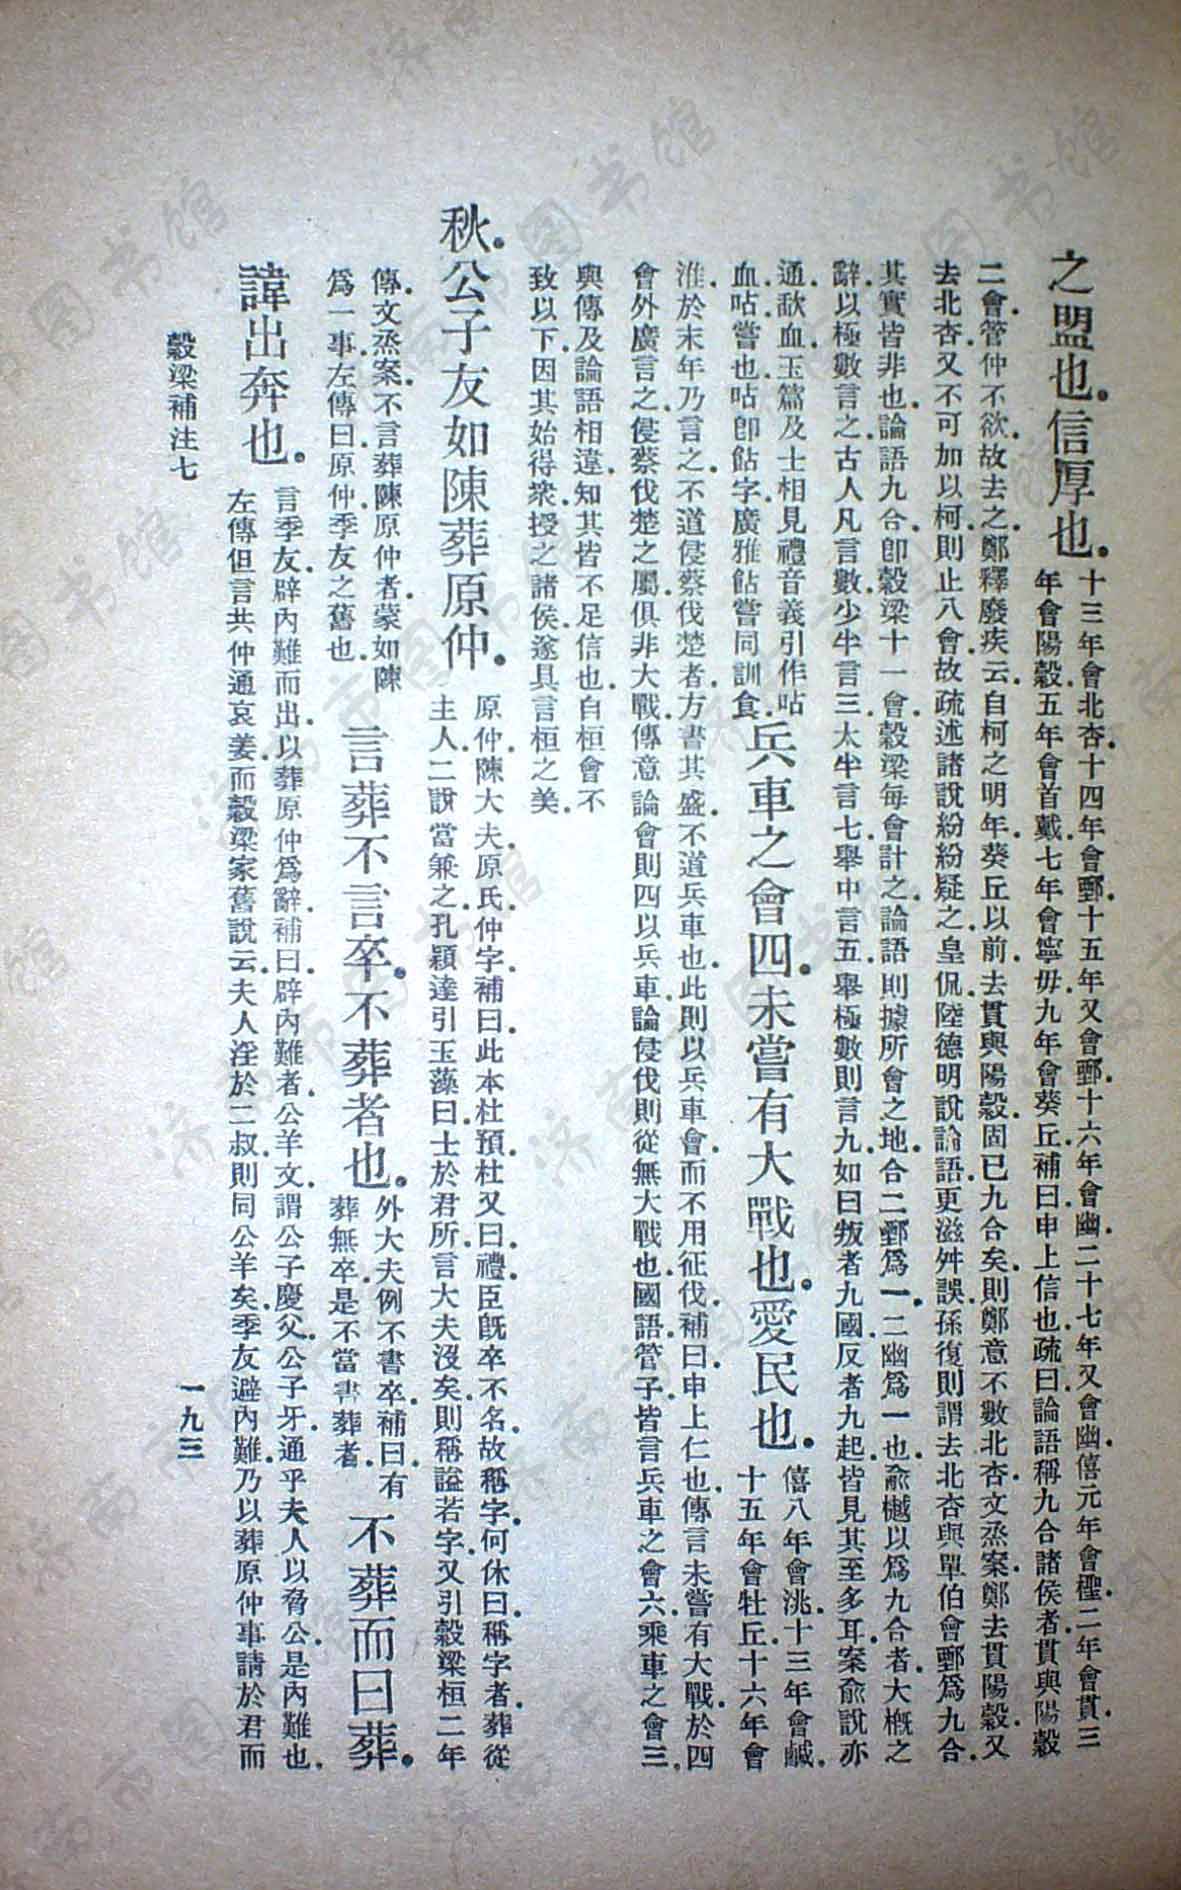 之盟也.信厚也.
十三年會北杏.十四年會鄄.十五年又會鄄.十六年會幽.二十七年又會幽.僖元年會檉.二年會貫.三
年會陽穀.五年會首戴.七年會寧毋.九年會葵丘.補曰.申上信也.疏曰.論語稱九合諸侯者.貫與陽穀
二會管仲不欲.故去之.鄭釋廢疾云.自柯之明年.葵丘以前.去貫與陽穀.固已九合矣.則鄭意不數北杏.文烝案.鄭去貫陽穀.又
去北杏.又不可加以柯.則止八會.故疏述諸說紛紛疑之.皇侃陸德明說論語.更滋舛誤.孫復則謂去北杏與單伯會鄄爲九合.
其實皆非也.論語九合.卽穀梁十一會.穀梁每會計之.論語則據所會之地.合二鄄爲一.二幽爲一也.兪樾以爲九合者.大槪之
辭.以極數言之.古人凡言數.少半言三.太半言七.舉中言五.舉極數則言九.如曰叛者九國.反者九起.皆見其至多耳.案兪說亦
通.歃血.玉篇及士相見禮音義引作呫
血.呫.嘗也.呫卽䬯字.廣雅䬯嘗同訓食.
兵車之會四.未嘗有大戰也.愛民也.
僖八年會洮.十三年會鹹.
十五年會牡丘.十六年會
淮.於末年乃言之.不道侵蔡伐楚者.方書其盛.不道兵車也.此則以兵車會.而不用征伐.補曰.申上仁也.傳言未嘗有大戰.於四
會外廣言之.侵蔡伐楚之屬.俱非大戰.傳意論會則四以兵車.論侵伐則從無大戰也.國語管子.皆言兵車之會六.乘車之會三.
與傳及論語相違.知其皆不足信也.自桓會不
致以下.因其始得衆.授之諸侯.遂具言桓之美.
秋.公子友如陳葬原仲.
原仲.陳大夫.原氏.仲字.補曰.此本杜預.杜又曰.禮.臣旣卒不名.故稱字.何休曰.稱字者.葬從
主人.二說當兼之.孔穎達引玉藻曰.士於君所言大夫沒矣.則稱謚若字.又引穀梁桓二年
傳.文烝案.不言葬陳原仲者.蒙如陳
爲一事.左傳曰.原仲.季友之舊也.
言葬不言卒.不葬者也.
外大夫例不書卒.補曰.有
葬無卒.是不當書葬者.
不葬而曰葬.
諱出奔也.
言季友辟內難而出.以葬原仲爲辭.補曰.辟內難者.公羊文.謂公子慶父.公子牙.通乎夫人以脅公.是內難也.
左傳但言共仲通哀姜.而穀梁家舊說云.夫人淫於二叔.則同公羊矣.季友避內難.乃以葬原仲事請於君而
穀梁補注七
一九三
济南市图书馆